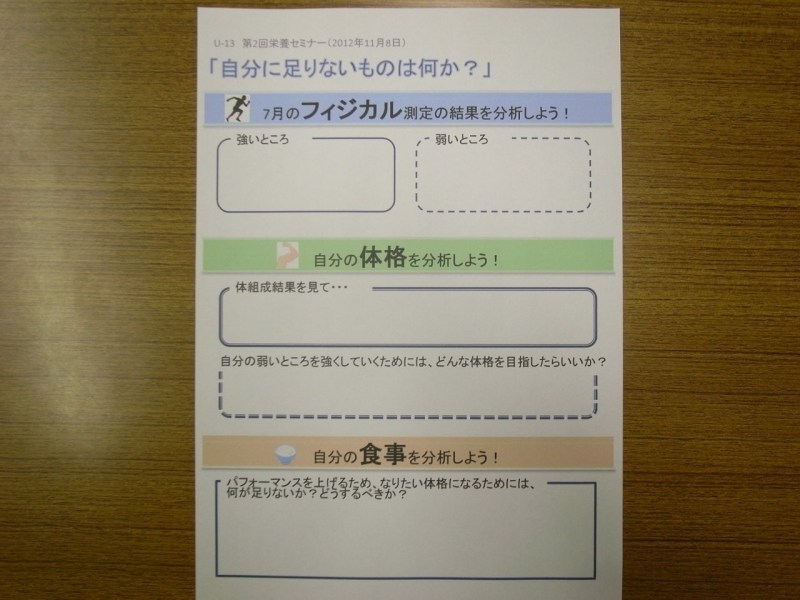 U-13 第2回栄養セミナー(2012年11月8日)
「自分に足りないものは何か？」
7月のフィジカル測定の結果を分析しよう！
強いところ
弱いところ
自分の体格を分析しよう！
体組成結果を見て・・・
自分の弱いところを強くしていくためには、どんな体格を目指したらいいか？
自分の食事を分析しよう！
パフォーマンスを上げるため、なりたい体格になるためには、
何が足りないか？どうするべきか？